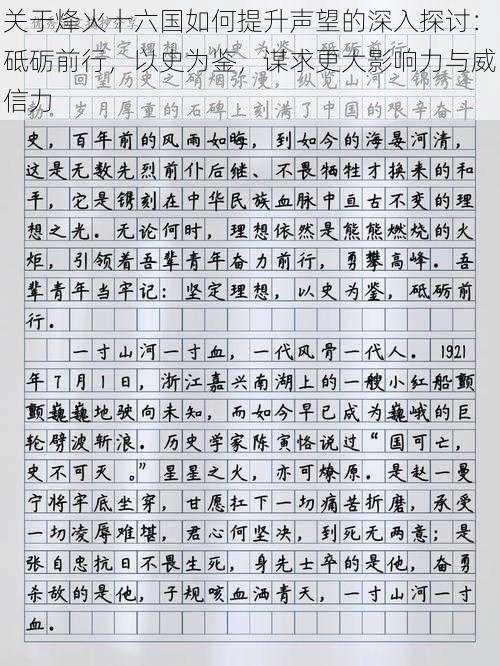 关于烽火十六国如何提升声望的深入探讨：
砥砺前行，以史为鉴，谋求更大影响力与威
信力
坚定理想，以史为鉴，砥砺前行
回望历史之硝烟弥漫，纵览山河之锦绣蓬
勃。岁月厚重的石碑上刻满了中国的艰辛奋斗
史，百年前的风雨如晦，到如今的海晏河清，
这是无数先烈前仆后继、不畏牺牲才换来的和
平，它是镌刻在中华民族血脉中亘古不变的理
想之光。无论何时，理想依然是熊熊燃烧的火
炬，引领着吾辈青年奋力前行，勇攀高峰。吾
辈青年当牢记：坚定理想，以史为鉴，砥砺前
行。
一寸山河一寸血，一代风骨一代人。1921
年7月1日，浙江嘉兴南湖上的一艘小红船颤
颤巍巍地驶向未知，而如今早已成为巍峨的巨
轮劈波斩浪。历史学家陈寅恪说过“国可亡，
史不可灭。”星星之火，亦可燎原。是赵一曼
宁将牢底坐穿，甘愿扛下一切痛苦折磨，承受
一切凌辱难堪，君心何坚决，到死无两意；是
张自忠抗日不畏生死，身先士卒的是他，奋勇
杀敌的是他，子规啼血洒青天，一寸山河一寸
血。